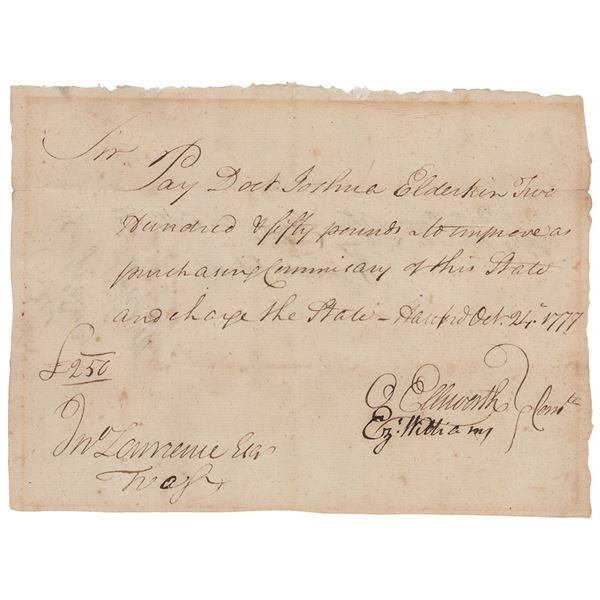 Sir Pay Doct. Joshua Elderkin Two
Hundred & fifty pounds to improve as
purchasing Commisary of this State
and charge the State - Hartfrd Oct. 24. 1777
£250
O Ellsworth
Ezr. Williams
Comtte
Jno Lawrence Esqr
Treasr